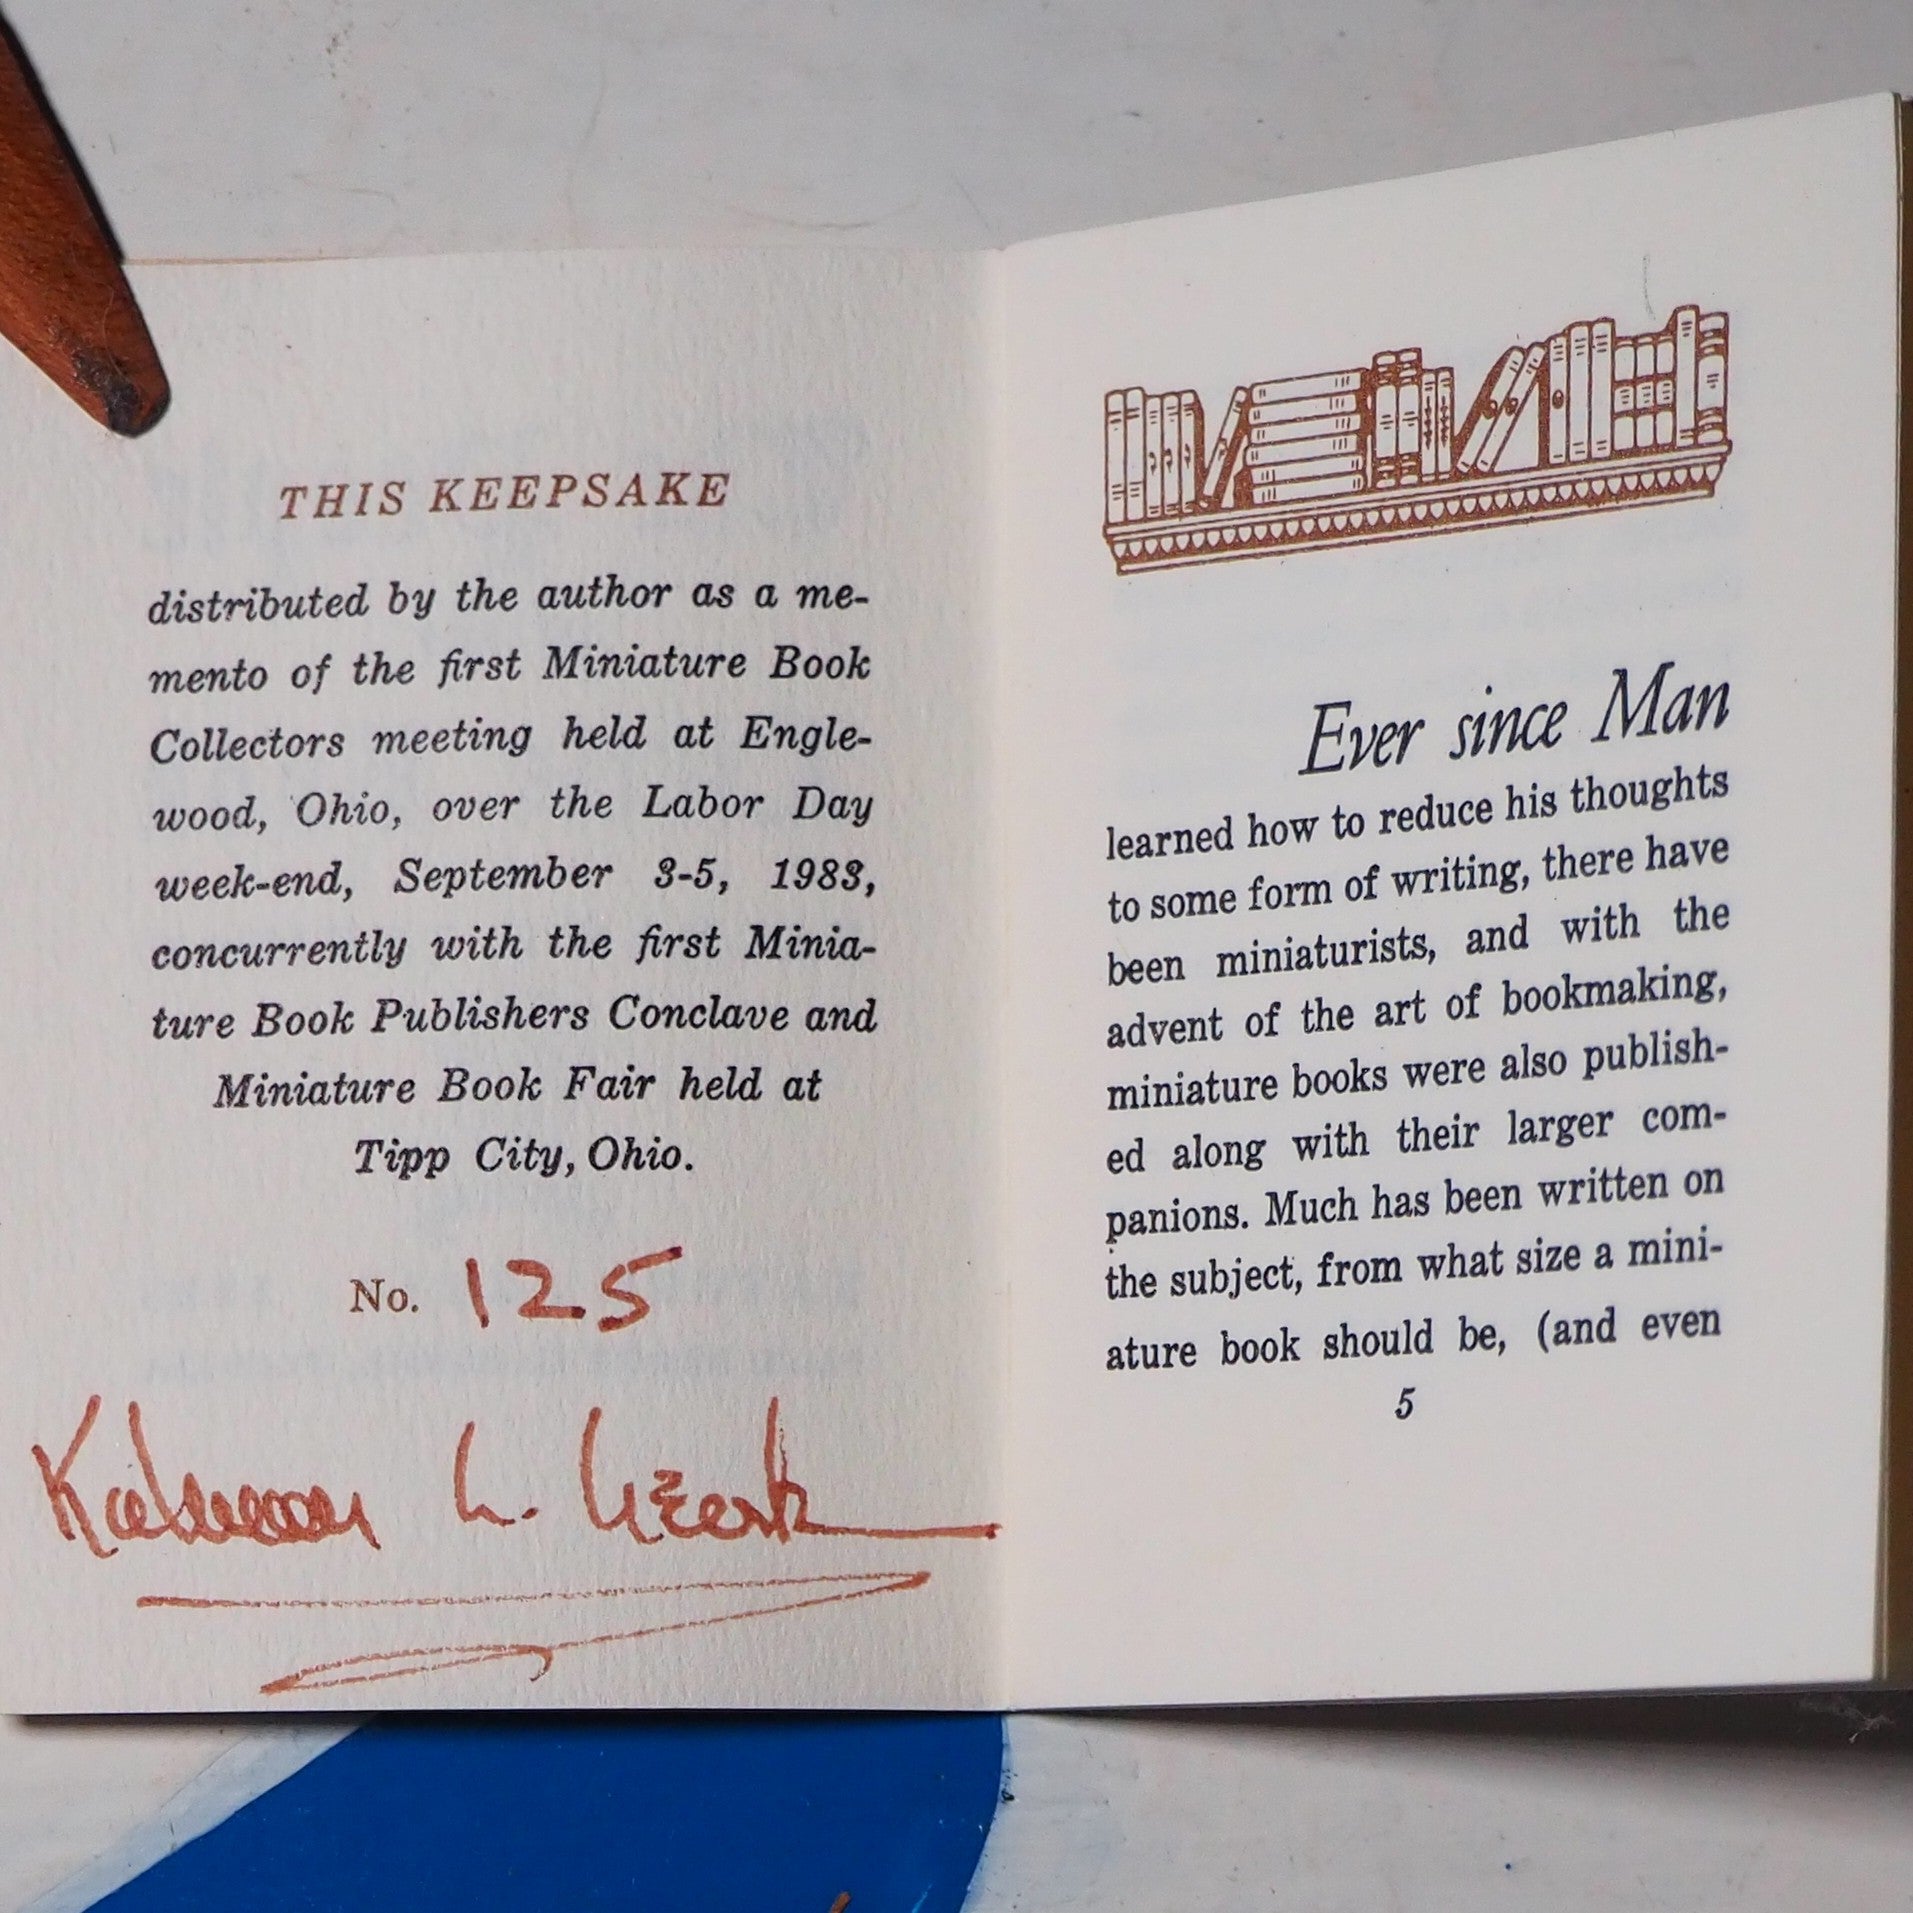 THIS KEEPSAKE
distributed by the author as a me-
mento of the first Miniature Book
Collectors meeting held at Engle-
wood, Ohio, over the Labor Day
week-end, September 3-5, 1983,
concurrently with the first Minia-
ture Book Publishers Conclave and
Miniature Book Fair held at
Tipp City, Ohio.
No. 125
Ever since Man
learned how to reduce his thoughts
to some form of writing, there have
been miniaturists, and with the
advent of the art of bookmaking,
miniature books were also publish-
ed along with their larger com-
panions. Much has been written on
the subject, from what size a mini-
ature book should be, (and even
5